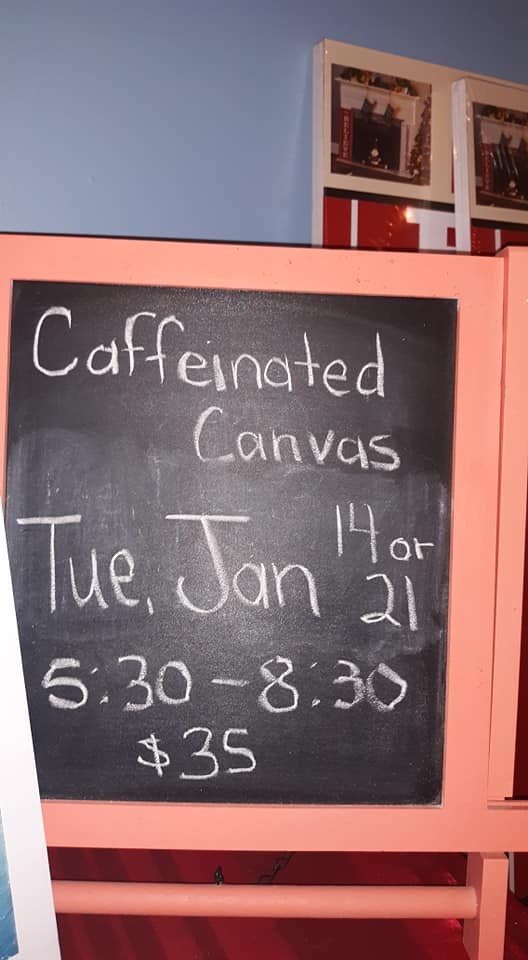 Caffeinated
Canvas
Tue, Jan 14 or
21
5:30-8:30
$35
BELIEVE